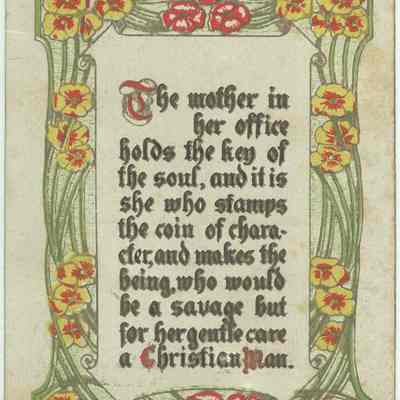 The mother in
her office
holds the key of
the soul, and it is
she who stamps
the coin of chara-
cter, and makes the
being, who would
be a savage but
for her gentle care
a Christian Man.